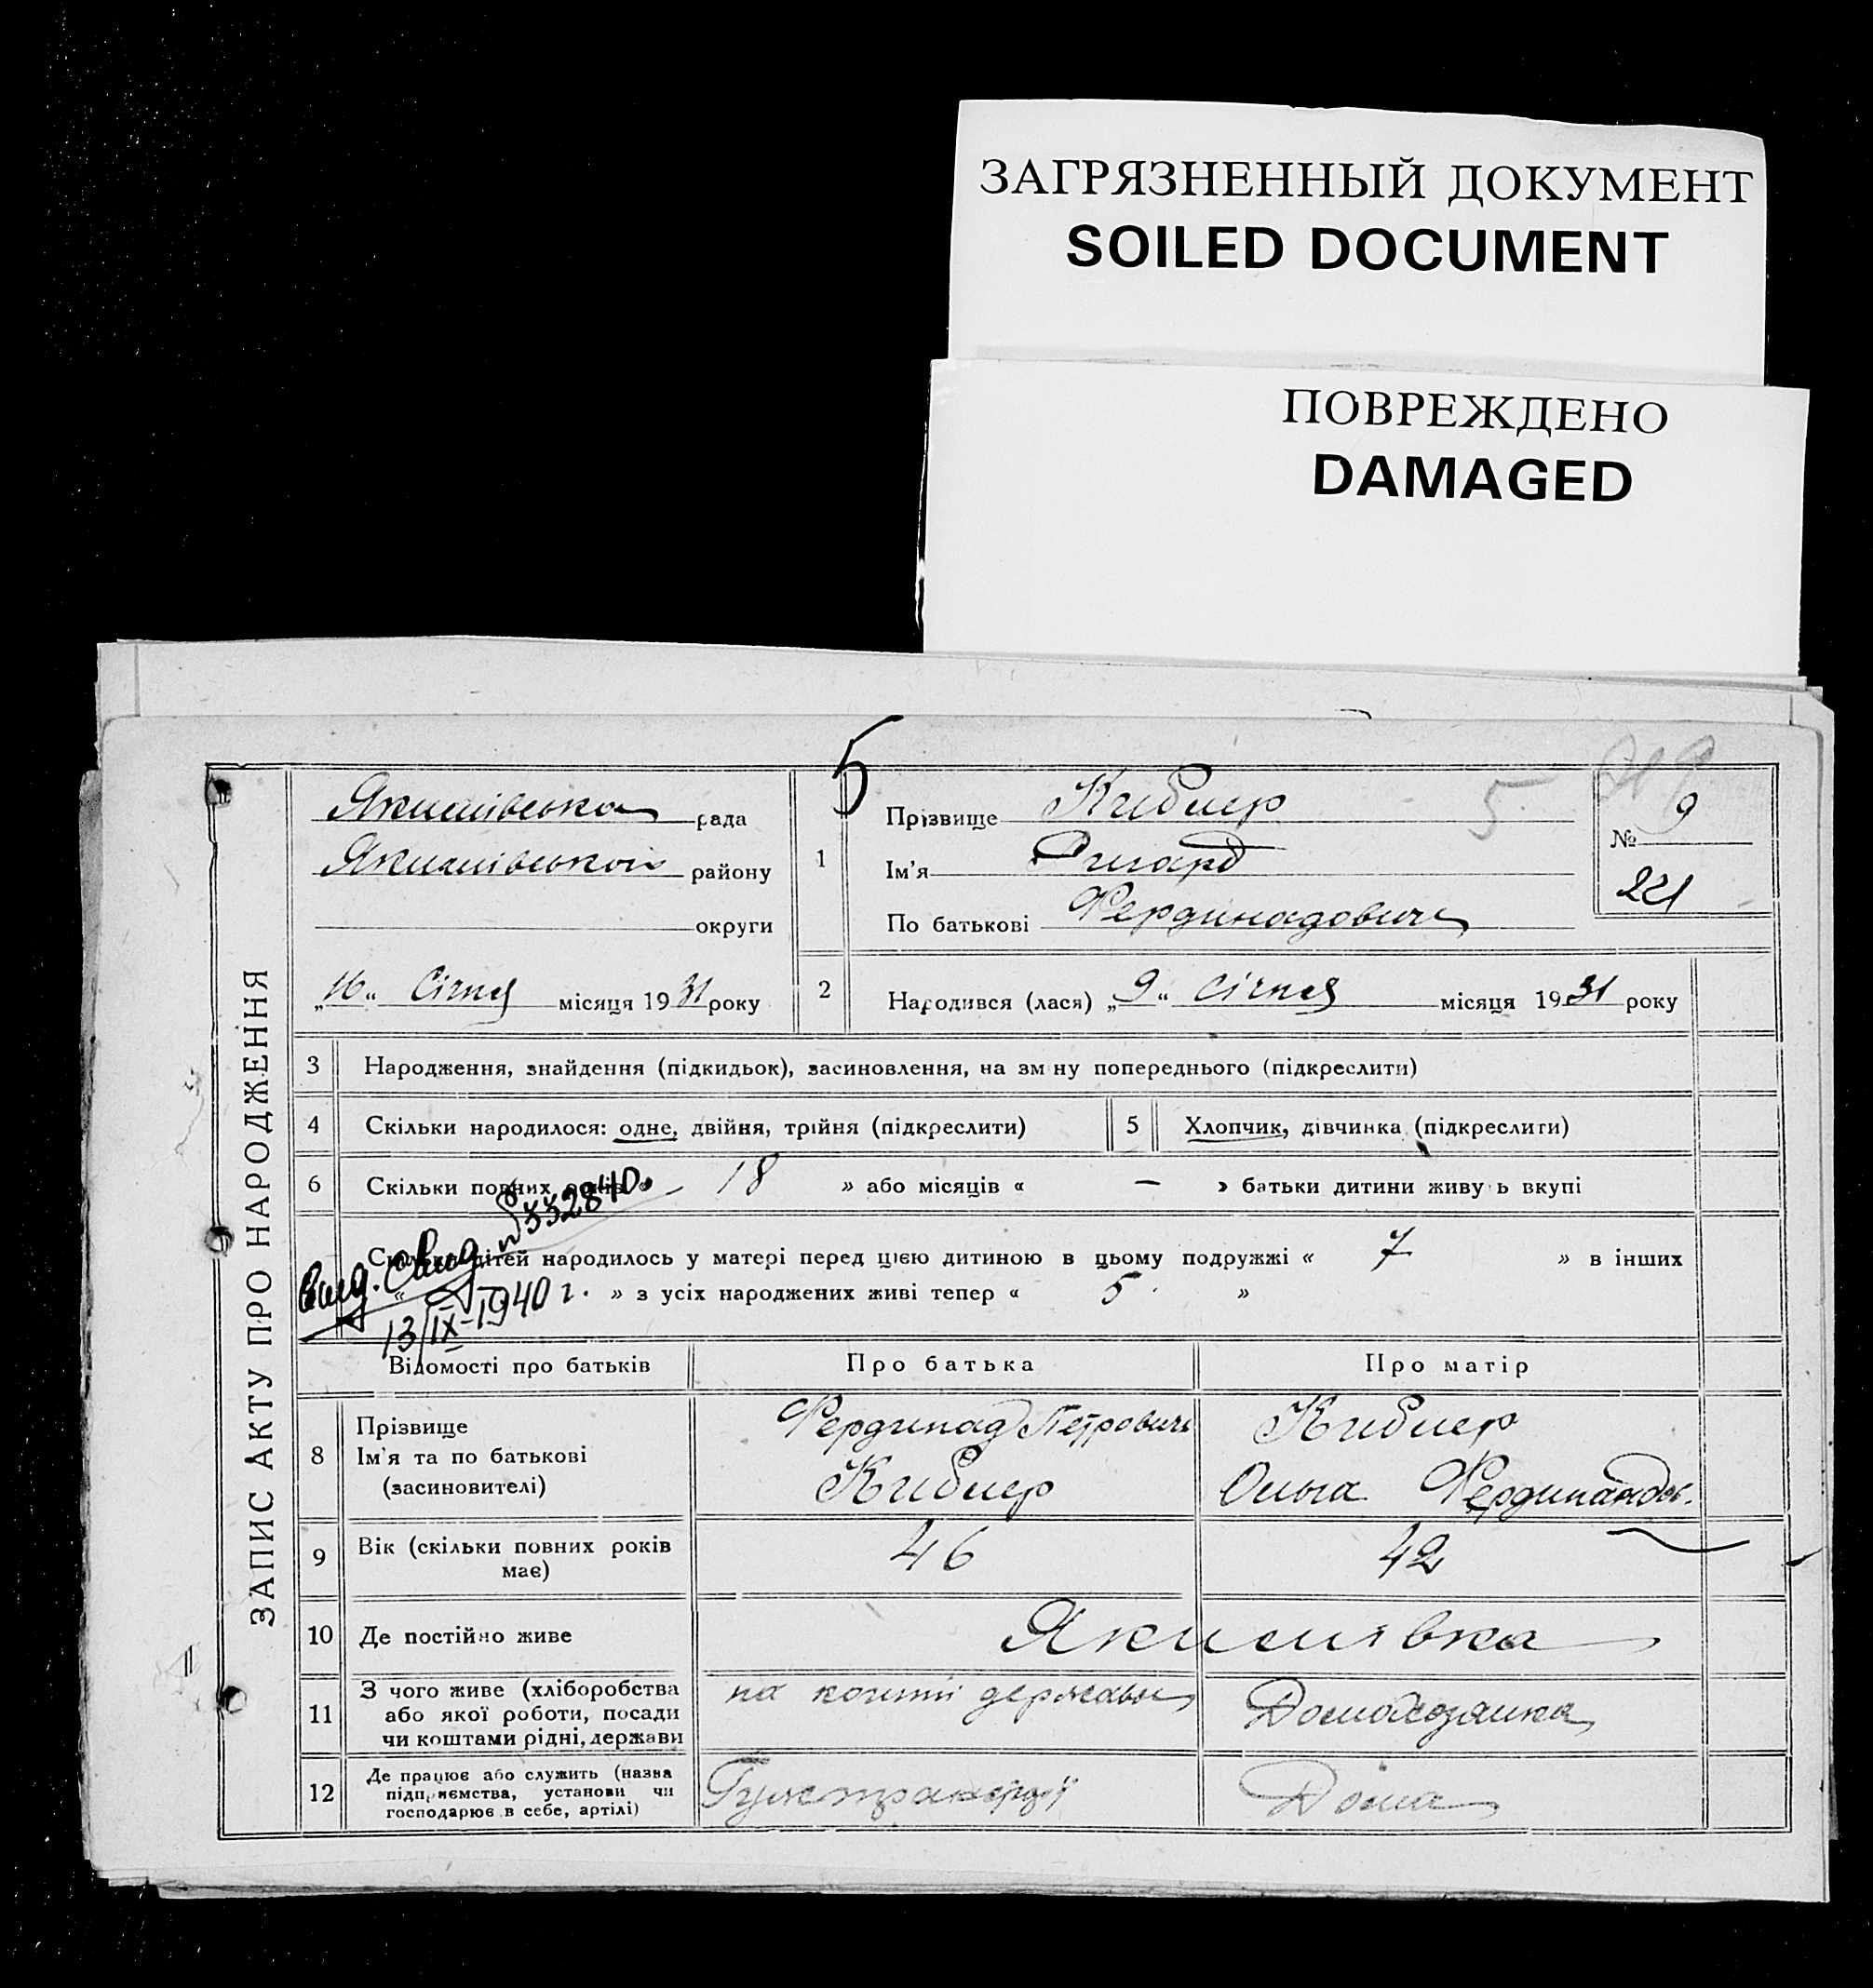 ЗАГРЯЗНЕННЫЙ ДОКУМЕНТ
SOILED DOCUMENT
ПОВРЕЖДЕНО
DAMAGED
5
ЗАПИС АКТУ ПРО НАРОДЖЕННЯ
Якимівська рада
Якимівського району
округи
„16“ Січня місяця 1931 року
1
Прізвище Киблер
Ім'я
По батькові Фердинадович
5
№ 9
221
2
Народився (лася) „9“ Січня місяця 1931 року
3 Народження, знайдення (підкидьок), засиновлення, на зміну попереднього (підкреслити)
4 Скільки народилося: одне, двійня, трійня (підкреслити)
5 Хлопчик, дівчинка (підкреслити)
6 Скільки повних років « 18 » або місяців « — » батьки дитини живуть вкупі
Скільки дітей народилось у матері перед цією дитиною в цьому подружжі « 7 » в інших
« » з усіх народжених живі тепер « 5 »
Выд. Свид. № 552840.
13/IX-1940 г.
Відомості про батьків Про батька Про матір
8 Прізвище
Ім'я та по батькові
(засиновителі)
Фердинад Петрович
Киблер
Киблер
Ольга Фердинандов.
9 Вік (скільки повних років має) 46 42
10 Де постійно живе Якимівка
11 З чого живе (хліборобства
або якої роботи, посади
чи коштами рідні, держави
на кошти державы
Домохозяика
12 Де працює або служить (назва
підприємства, установи чи
господарює в себе, артілі)
Дома